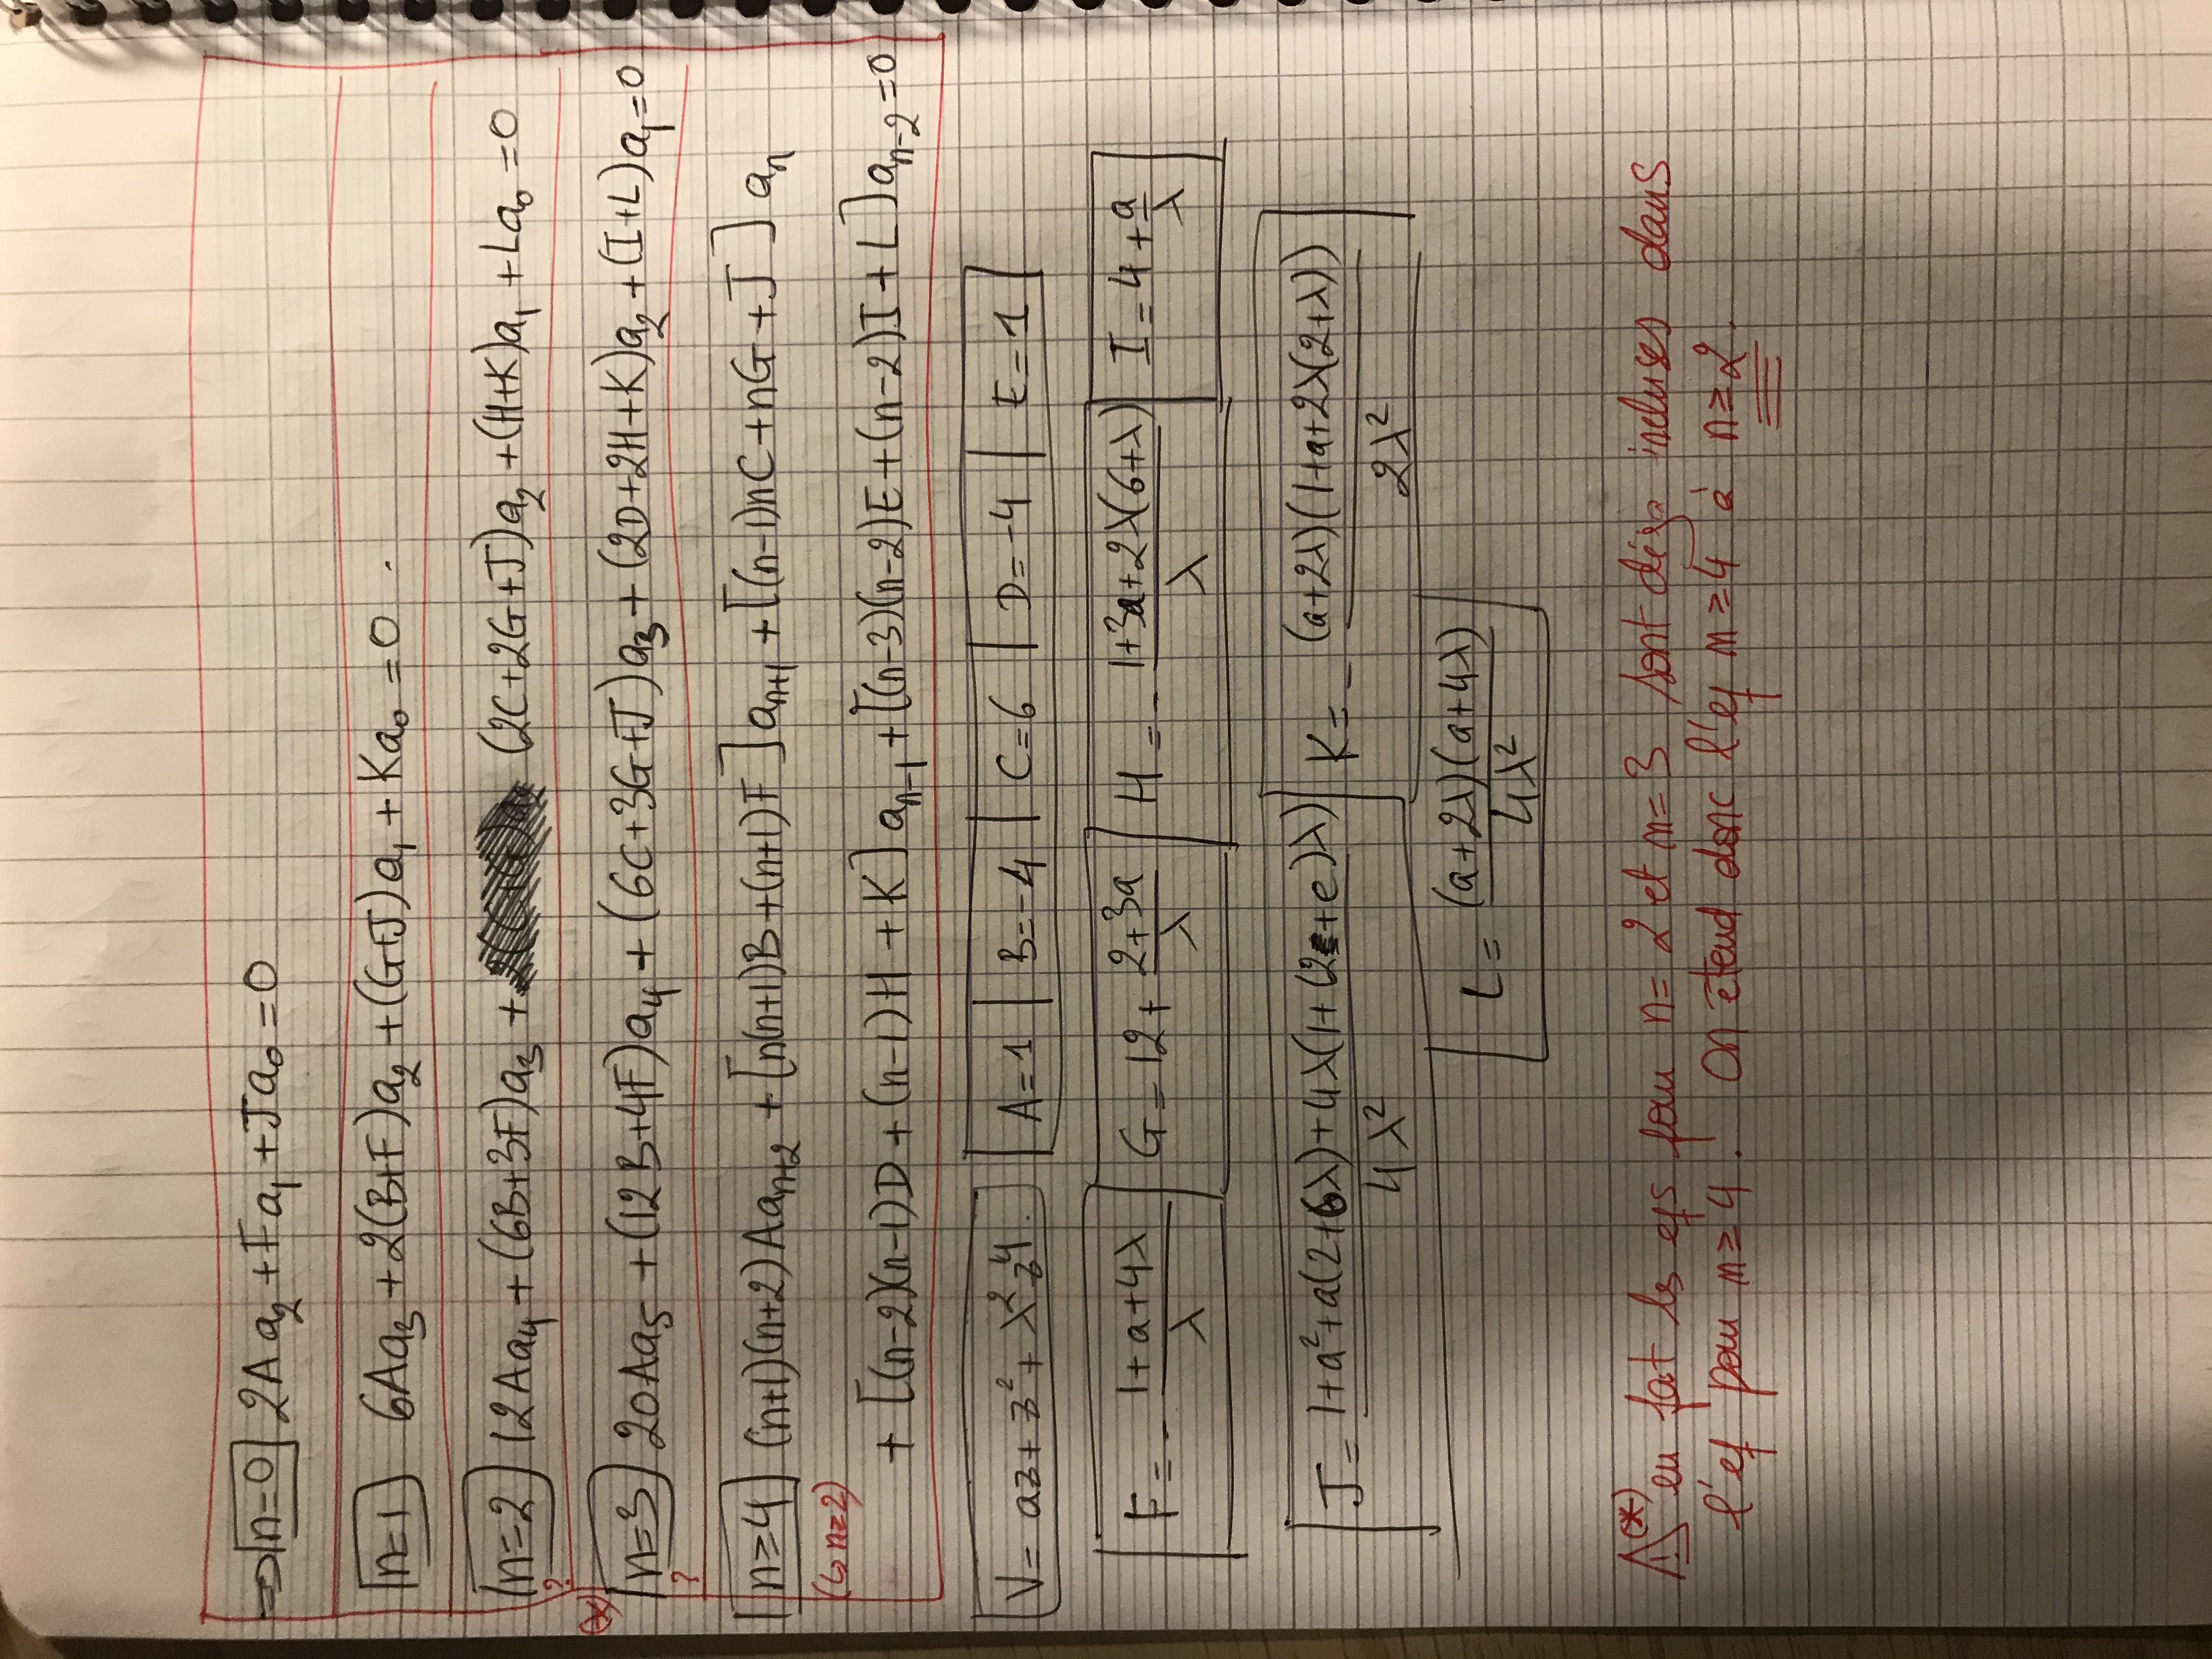 ⇒ n=0 2Aa₂ + Fa₁ + Ja₀ = 0
n=1 6Aa₃ + 2(B+F)a₂ + (G+J)a₁ + Ka₀ = 0
n=2 12Aa₄ + (6B+3F)a₃ + (2C+2G+J)a₂ + (H+K)a₁ + La₀ = 0
?
(*) n=3 20Aa₅ + (12B+4F)a₄ + (6C+3G+J)a₃ + (2D+2H+K)a₂ + (I+L)a₁ = 0
?
n≥4 (n+1)(n+2)Aaₙ₊₂ + [n(n+1)B + (n+1)F]aₙ₊₁ + [(n-1)nC + nG + J] aₙ
(↳ n≥2)
+ [(n-2)(n-1)D + (n-1)H + K] aₙ₋₁ + [(n-3)(n-2)E + (n-2)I + L]aₙ₋₂ = 0
V = az + z² + λ²z⁴. | A=1 | B=-4 | C=6 | D=-4 | E=1
F = - (1+a+4λ)/λ | G = 12 + (2+3a)/λ | H = - (1+3a+2λ(6+λ))/λ | I = 4 + a/λ
J = (1+a²+a(2+6λ)+4λ(1+(2ε+e)λ))/4λ² | K = - (a+2λ)(1+a+2λ(2+λ))/2λ²
L = (a+2λ)(a+4λ)/4λ²
⚠(*) en fait les eqs pour n=2 et n=3 sont déjà incluses dans
l'eq pour n≥4. On étend donc l'eq n≥4 à n≥2.